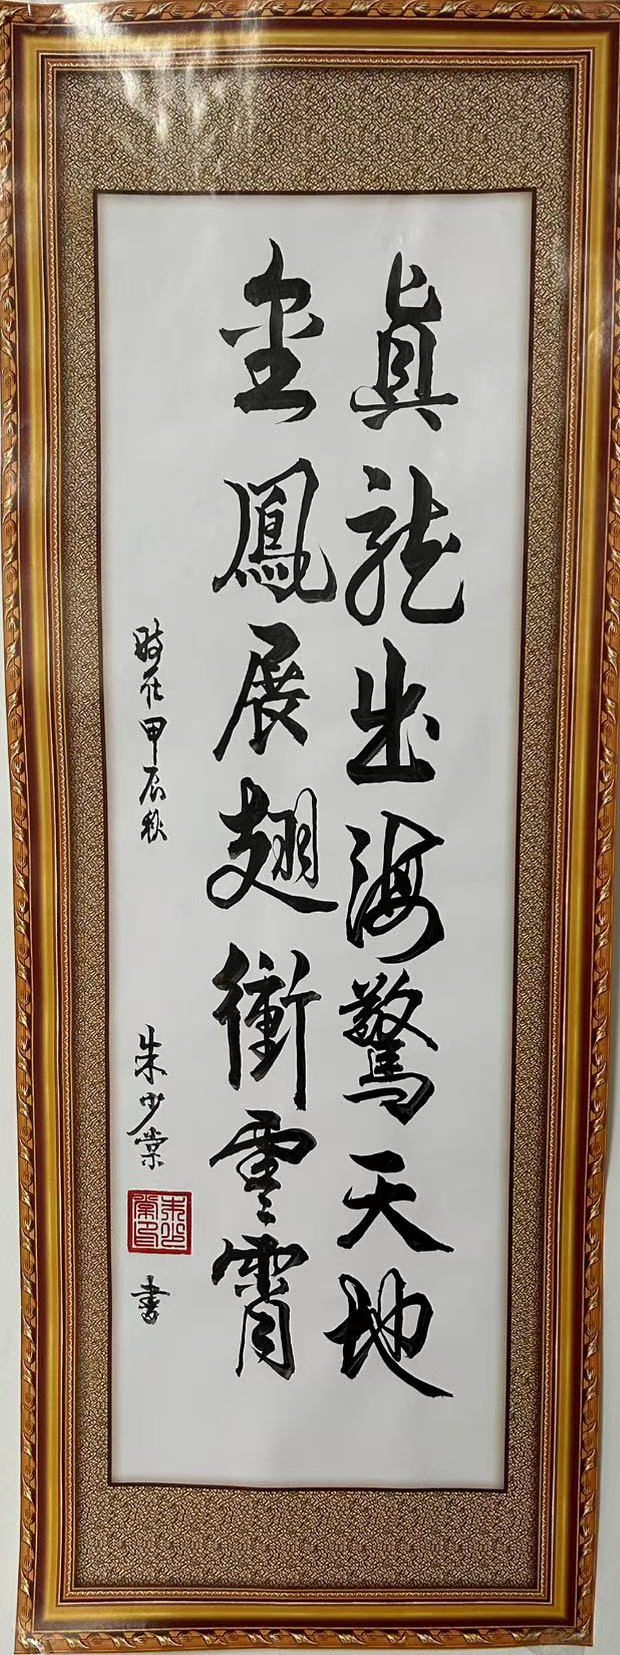 真龍出海驚天地
金鳳展翅衝雲霄
時在甲辰秋
朱少棠
書